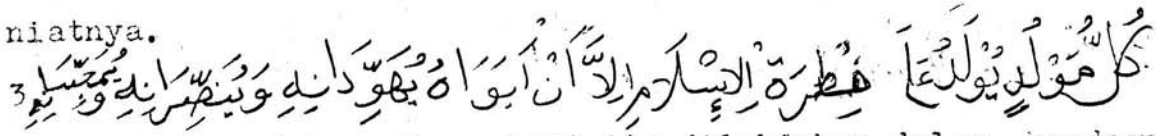 niatnya.
كُلُّ مَوْلُدٍ يُوْلَدُ عَلَى فِطْرَةِ الْاِسْلَامِ اِلاَّ اَنْ اَبَوَاهُ يُهَوِّدَانِهِ وَيُنَصِّرَانِهِ وَيُمَجِّسَانِهِ
3